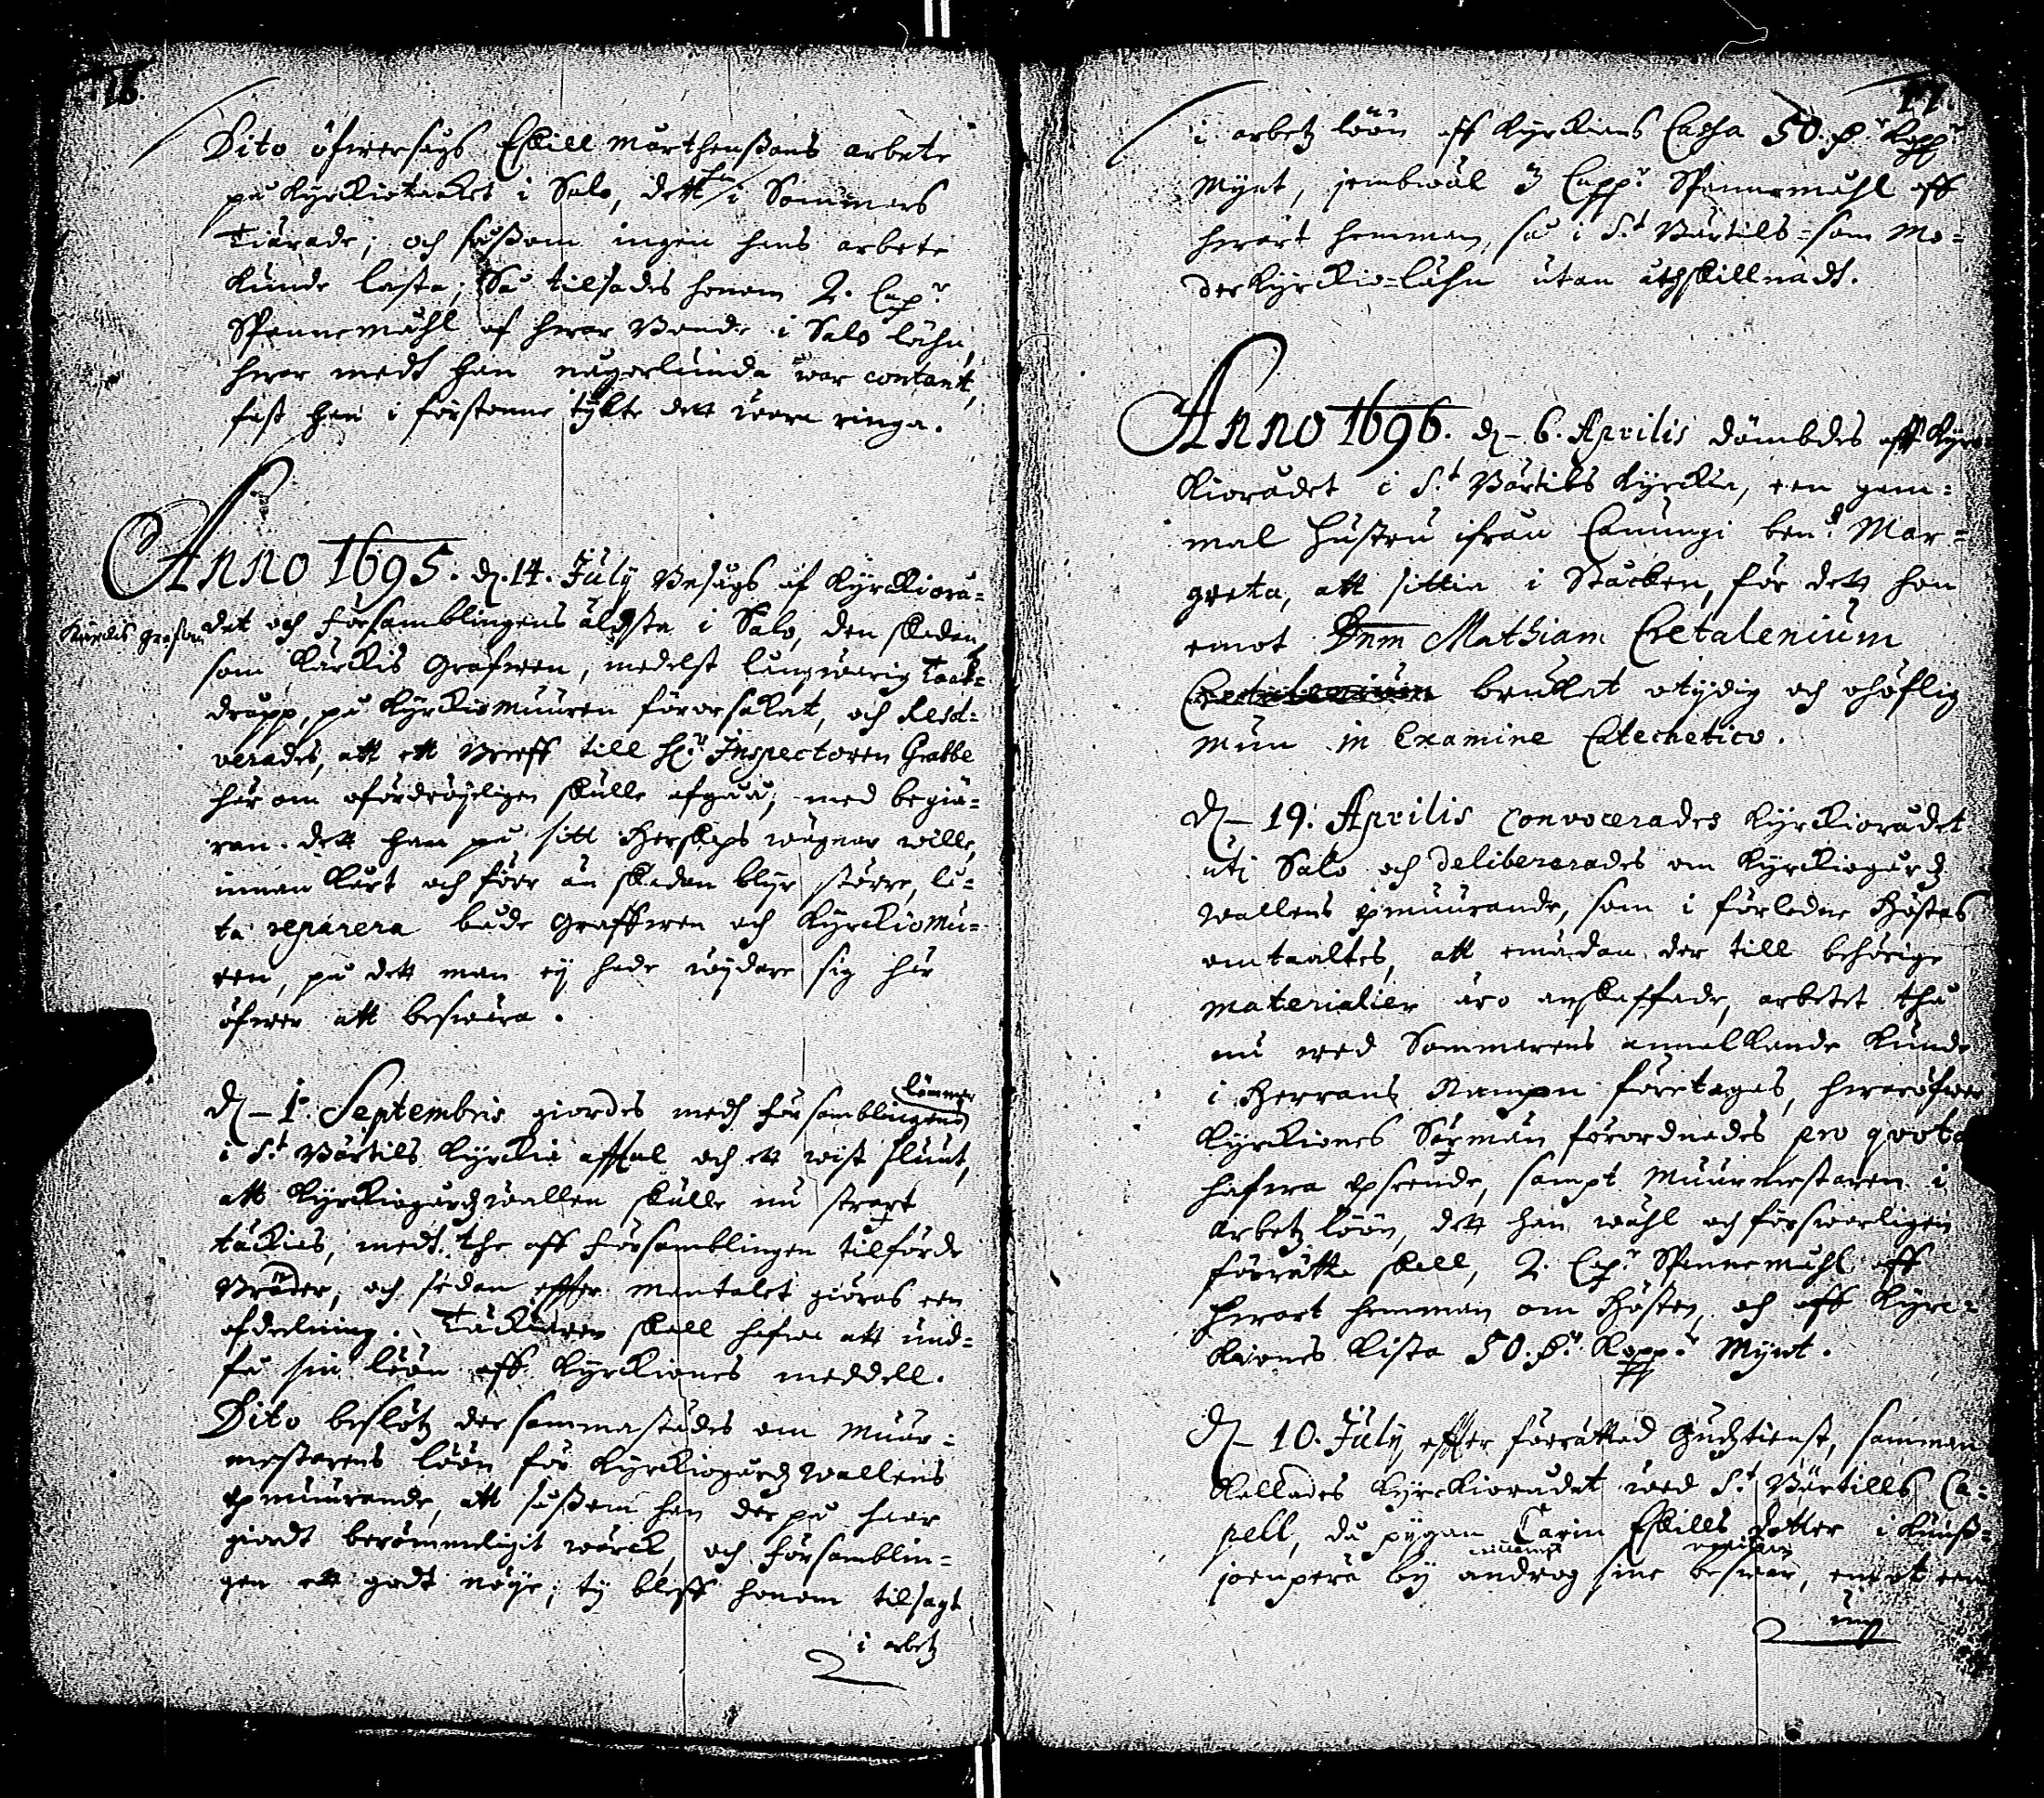 16.
Dito öfwersågs Eskill Mårthenßons arbete
på Kyrckiotaaket i Salo, dett han i Sommars
Tiärade; och såßom ingen hans arbete
kunde lasta; Så tillsades honom 2. Cap.r
Spannemåhl af hwar Bonde i Salo lähn,
hwar medt han någorlunda war contant,
fast han i förstonne tykte dett wara ringa.
Anno 1695. d. 14. July Besågs af Kyrckiorå-
Kärckis Grafwen
det och Församblingens äldsta i Salo, den skadan
som Kärckis Grafwen, medelst långwarig Taak-
dropp, på Kyrckiomuuren förorsakat, och Resol-
verades, att ett Breff till H.r Inspectoren Grabbe
här om ofördröyeligen skulle afgåå; med begiä-
ran dett han på sitt Herskaps wägnar wille,
innan kårt och förr än skadan blijr större, lå-
ta reparera både Graffwen och Kyrckiomu-
ren, på dett man ej hade wijdare sig här
öfwer att beswära.
d. 1. Septembris giordes medh Församblingens
Lämmar
i S.t Bärtils Kyrckia afftal och ett wist sluut,
att Kyrckiogårdzwallen skulle nu strart
täckias, medt the aff Församblingen tilförde
Bräder, och sedan effter mantalet giöras een
afdeelning. Täckiaren skall hafwa att und-
få sin löön aff Kyrckiones meddell.
Dito beslötz der sammastädes om Muur-
mestarens löön för Kyrckiogårdz wallens
vpmuurande, att såßom han der på haar
giordt berömmeligit wärck, och Församblin-
gen ett godt nöije; ty bleff honom tillsagt
i arbetz
17.
i arbetz löön aff Kyrckians Cassa 50. D.r Kopp.r
Mynt, sembwäl 3 Capp.r Spannemåhl aff
hwart hemman, så i S.t Bärtils- som Mo-
derkyrckio-lähn utan åthskillnadt.
Anno 1696. d. 6. Aprilis dömbdes aff Kyrc-
kiorådet i S.t Bärtils Kyrckia, een gam-
mal hustru ifrån Canungi be.d Mar-
greta, att sittia i Stäcken, för dett hon
emot Dnm Mathiam Cretalenium
Cretalenium brukat otijdig och ohöflig
mun in Examine Catechetico.
d. 19. Aprilis convocerades Kyrckiorådet
uti Salo och delibererades om Kyrckiogårdz
wallens vpmuurande, som i förledne Höstas
omtaaltes, att emädan der till behörige
materialier äro anskaffade, arbetet thå
nu wed Sommarens annalkande kunde
i Herrans Nampn företagas, hwaröfwer
Kyrckiones Sexmän förordnades pro qvota
hafwa vpseende, sampt Muurmestaren i
arbetz löön, dett han wähl och förswarligen
förrätta skall, 2. Cap.r Spannemåhl aff
hwart hemman om Hösten, och aff Kyrc-
kiones Kista 50. D.r Kopp.r Mynt.
d. 10. July, effter förrättad Gudztienst, samman
kallades Kyrckiorådet wed S.t Bärtills Ca-
pell, då pijgan Carin Eskills dotter i Kuuß-
joenperä by androg sine beswär, emot een
ung